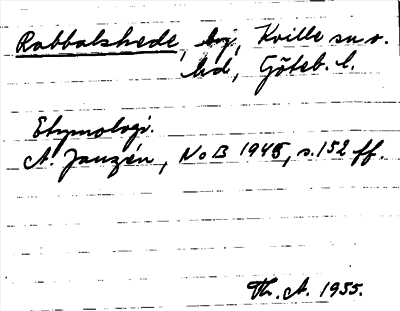 Rabbalshede, by, Kville sn o.
hd, Göteb. l.
Etymologi.
A. Janzén, NoB 1945, s. 152 ff.
Th. A. 1955.